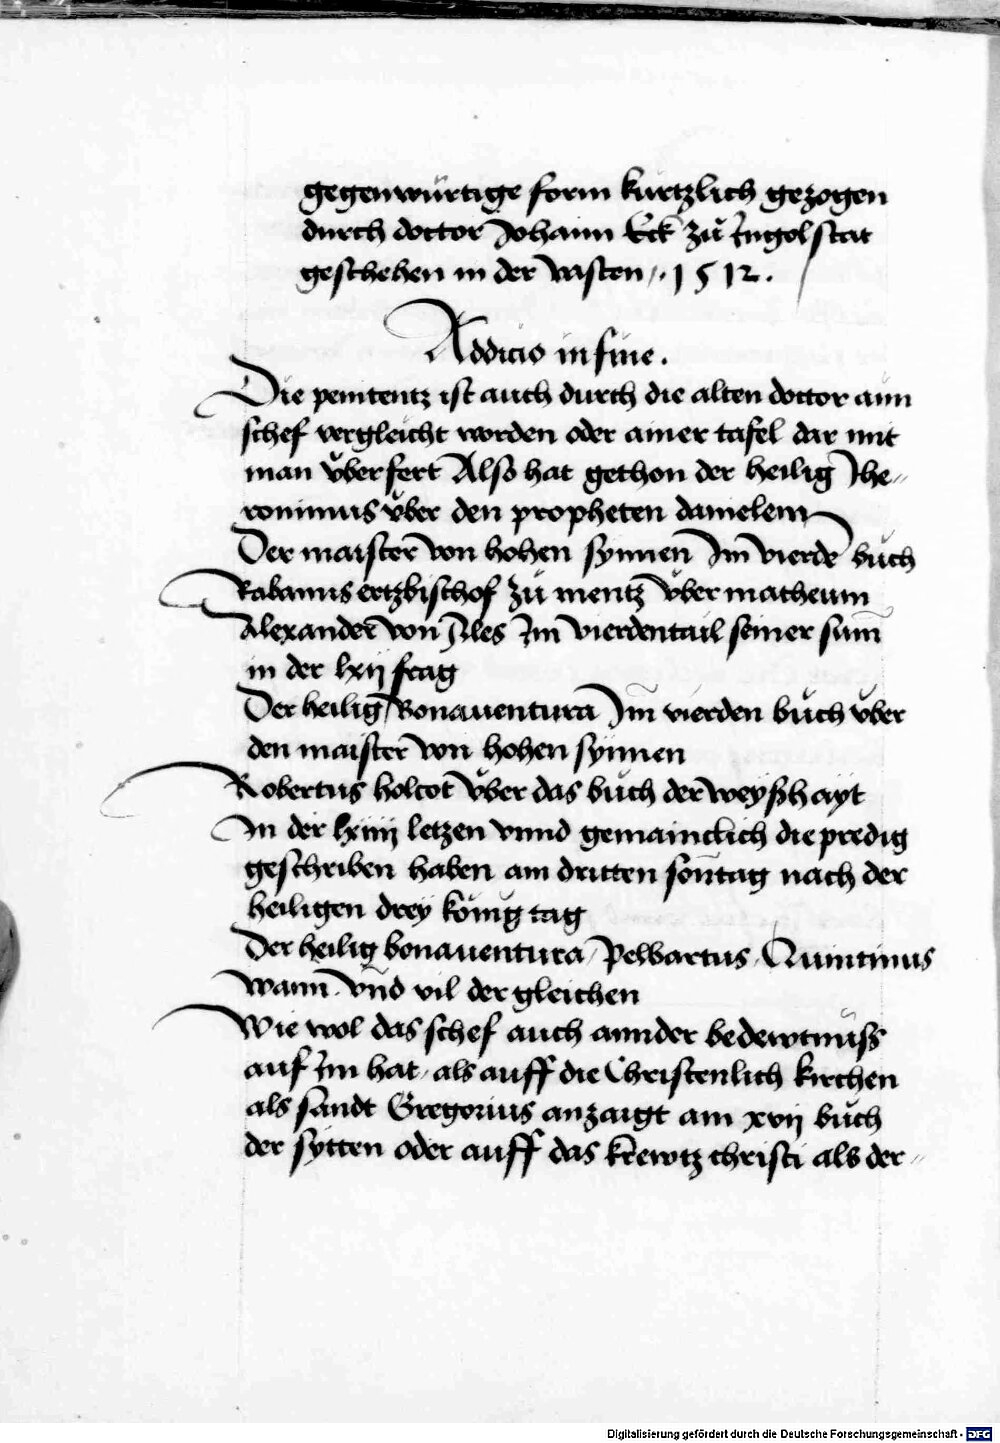 gegenwürtige form kürtzlich gezogen
durch doctor Johann Eck zů Ingolstat
geschehen in der vasten 1512.
Addicio in fine.
Die penitentz ist auch durch die alten doctor ainn
schef vergleicht worden oder ainer tafel dar mit
man v̊berfert Also hat gethon der heilig Jhe-
ronimus v̊ber den propheten danielem
Der maister von hohen synnen Im vierdē bůch
Rabanus ertzbischof zů mentz v̊ber matheum
Alexander von Ales Im vierdentail seiner sum̄
in der lxij frag
Der heilig Bonauentura Im̄ vierden bůch v̊ber
den maister von hohen synnen
Robertus holcot v̊ber das bůch der weyßhayt
In der lxiiij letzen vnnd gemainclich die predig
geschriben haben am dritten son̄tag nach der
heiligen drey könig tag
Der heilig bonauentura / Pelbartus / Quintinus
wann vn̄d vil der gleichen
Wie wol das schef auch annder bedewtnüss
auf Im hat / als auff die Christenlich kirchen
als sandt Gregorius anzaigt am xvij bůch
der sytten oder auff das krewtz christi als der-
Digitalisierung gefördert durch die Deutsche Forschungsgemeinschaft - DFG